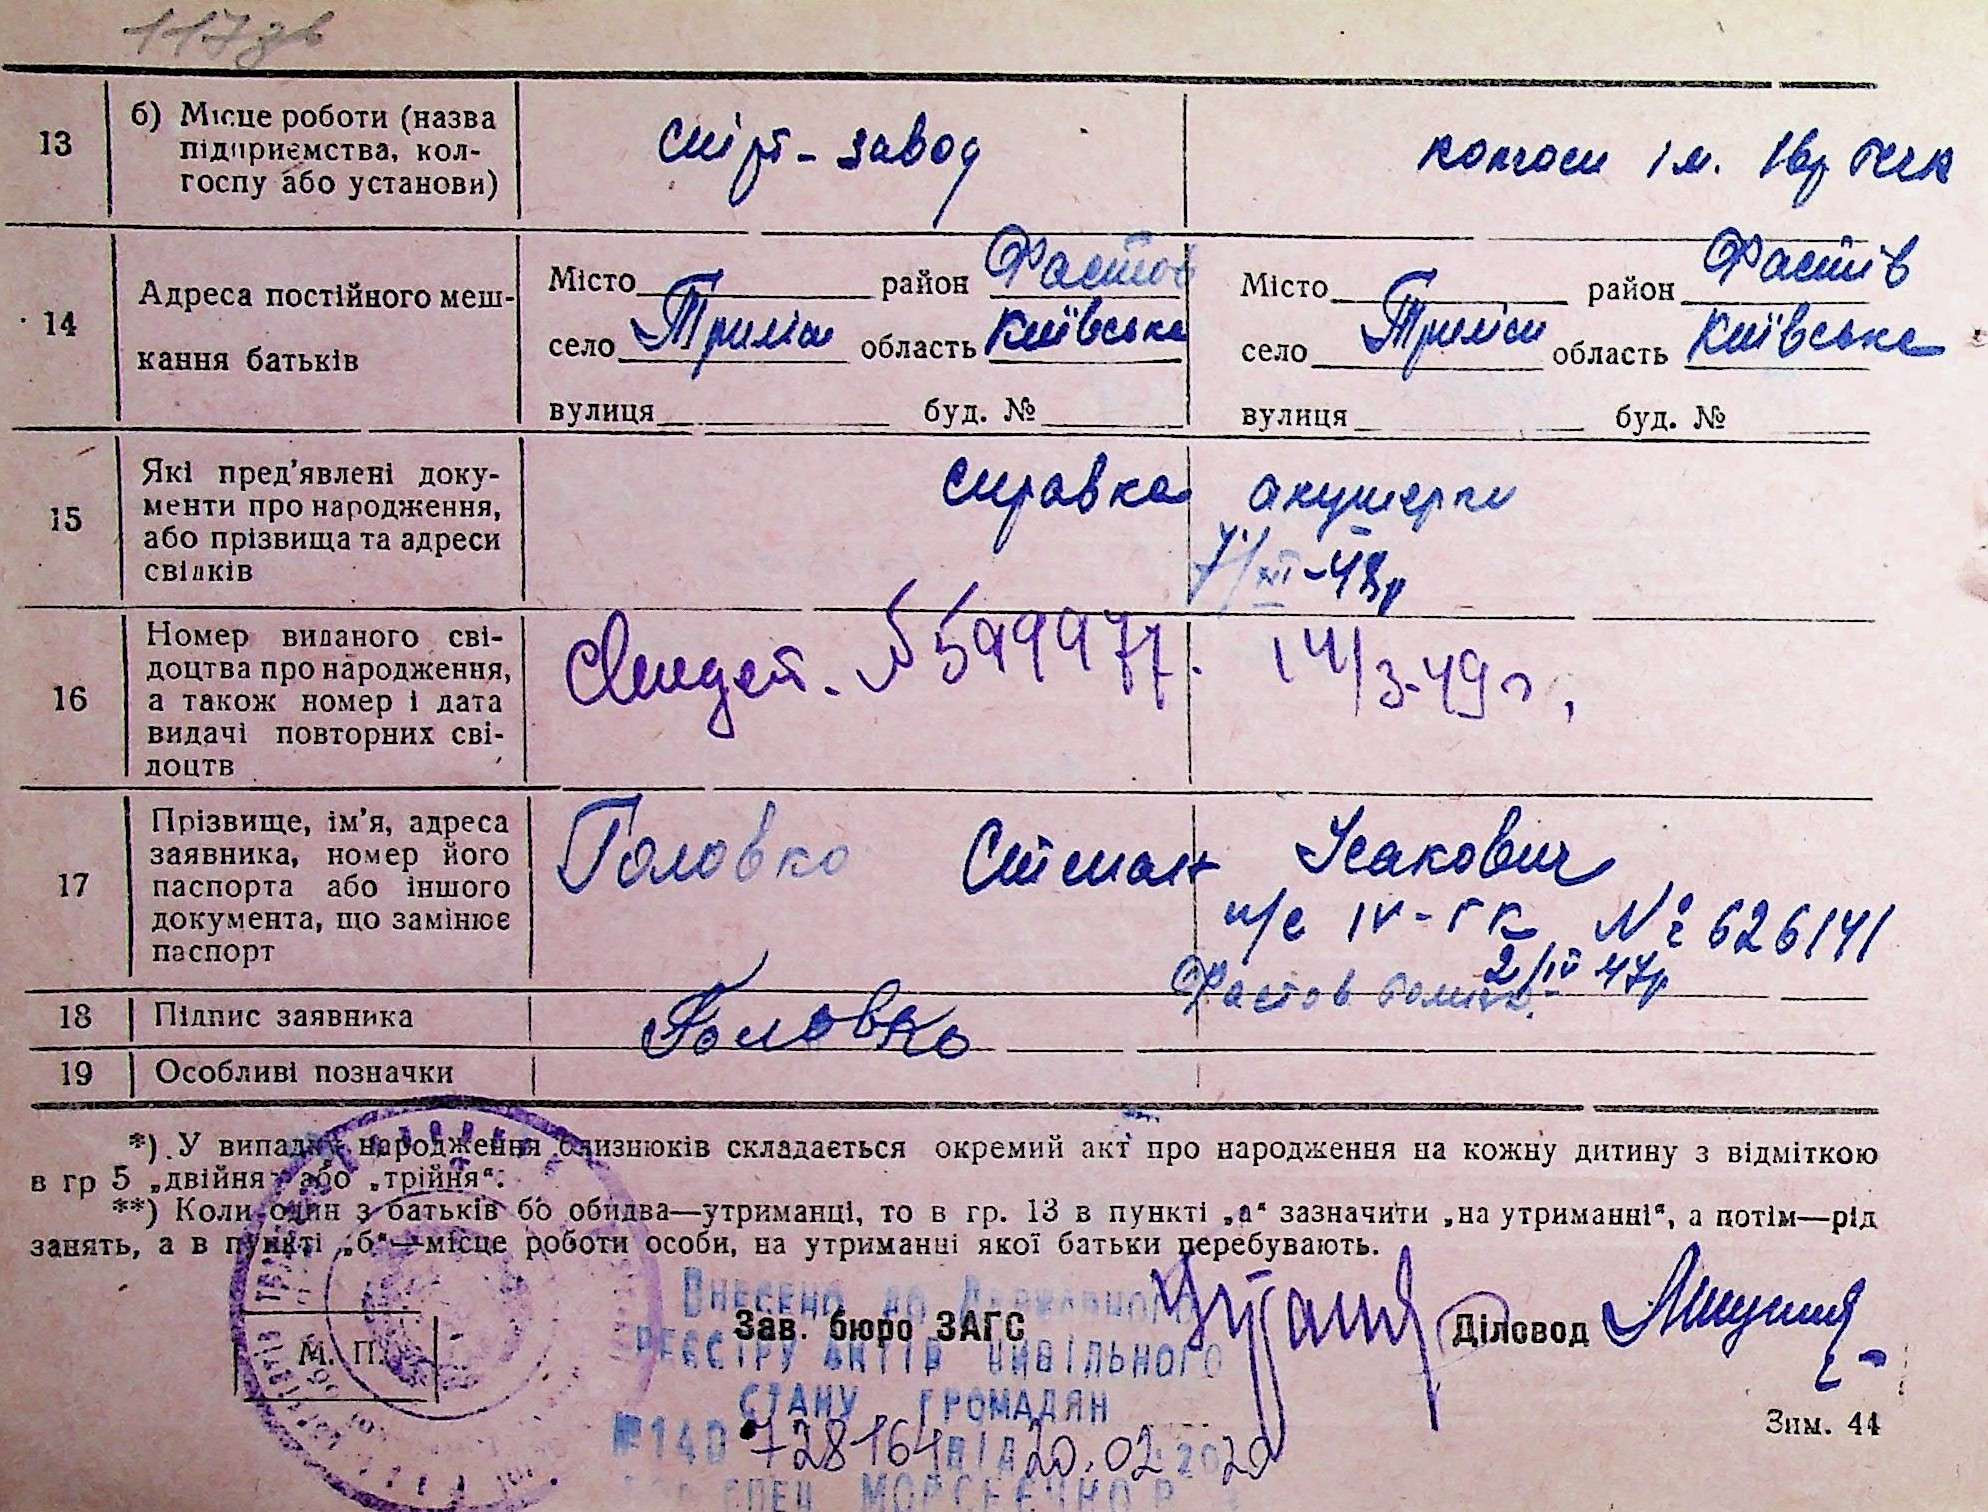 117зв
13 б) Місце роботи (назва
підприємства, кол-
госпу або установи)
спірт-завод
колгосп ім.
14 Адреса постійного меш-
кання батьків
Місто район Фастов
село Триліси область Київська
вулиця буд. №
Місто район Фастів
село Триліси область Київська
вулиця буд. №
15 Які пред'явлені доку-
менти про народження,
або прізвища та адреси
свідків
справка акушерки
7/XII-48р
16 Номер виданого сві-
доцтва про народження,
а також номер і дата
видачі повторних сві-
доцтв
№ 599977. 14/3-49г.
17 Прізвище, ім'я, адреса
заявника, номер його
паспорта або іншого
документа, що замінює
паспорт
Головко Степан Ісакович
п/с IV-ГК № 626141
2/IV 47р
Фастов
18 Підпис заявника
Головко
19 Особливі позначки
*) У випадку народження близнюків складається окремий акт про народження на кожну дитину з відміткою
в гр 5 „двійня" або „трійня".
**) Коли один з батьків бо обидва—утриманці, то в гр. 13 в пункті „а" зазначити „на утриманні", а потім—рід
занять, а в пункті „б"—місце роботи особи, на утриманні якої батьки перебувають.
Внесено до Державного
Зав. бюро ЗАГС
Діловод
реєстру актів цивільного
М. П.
стану громадян
№140 728164 від 20.02 2020
Зим. 44